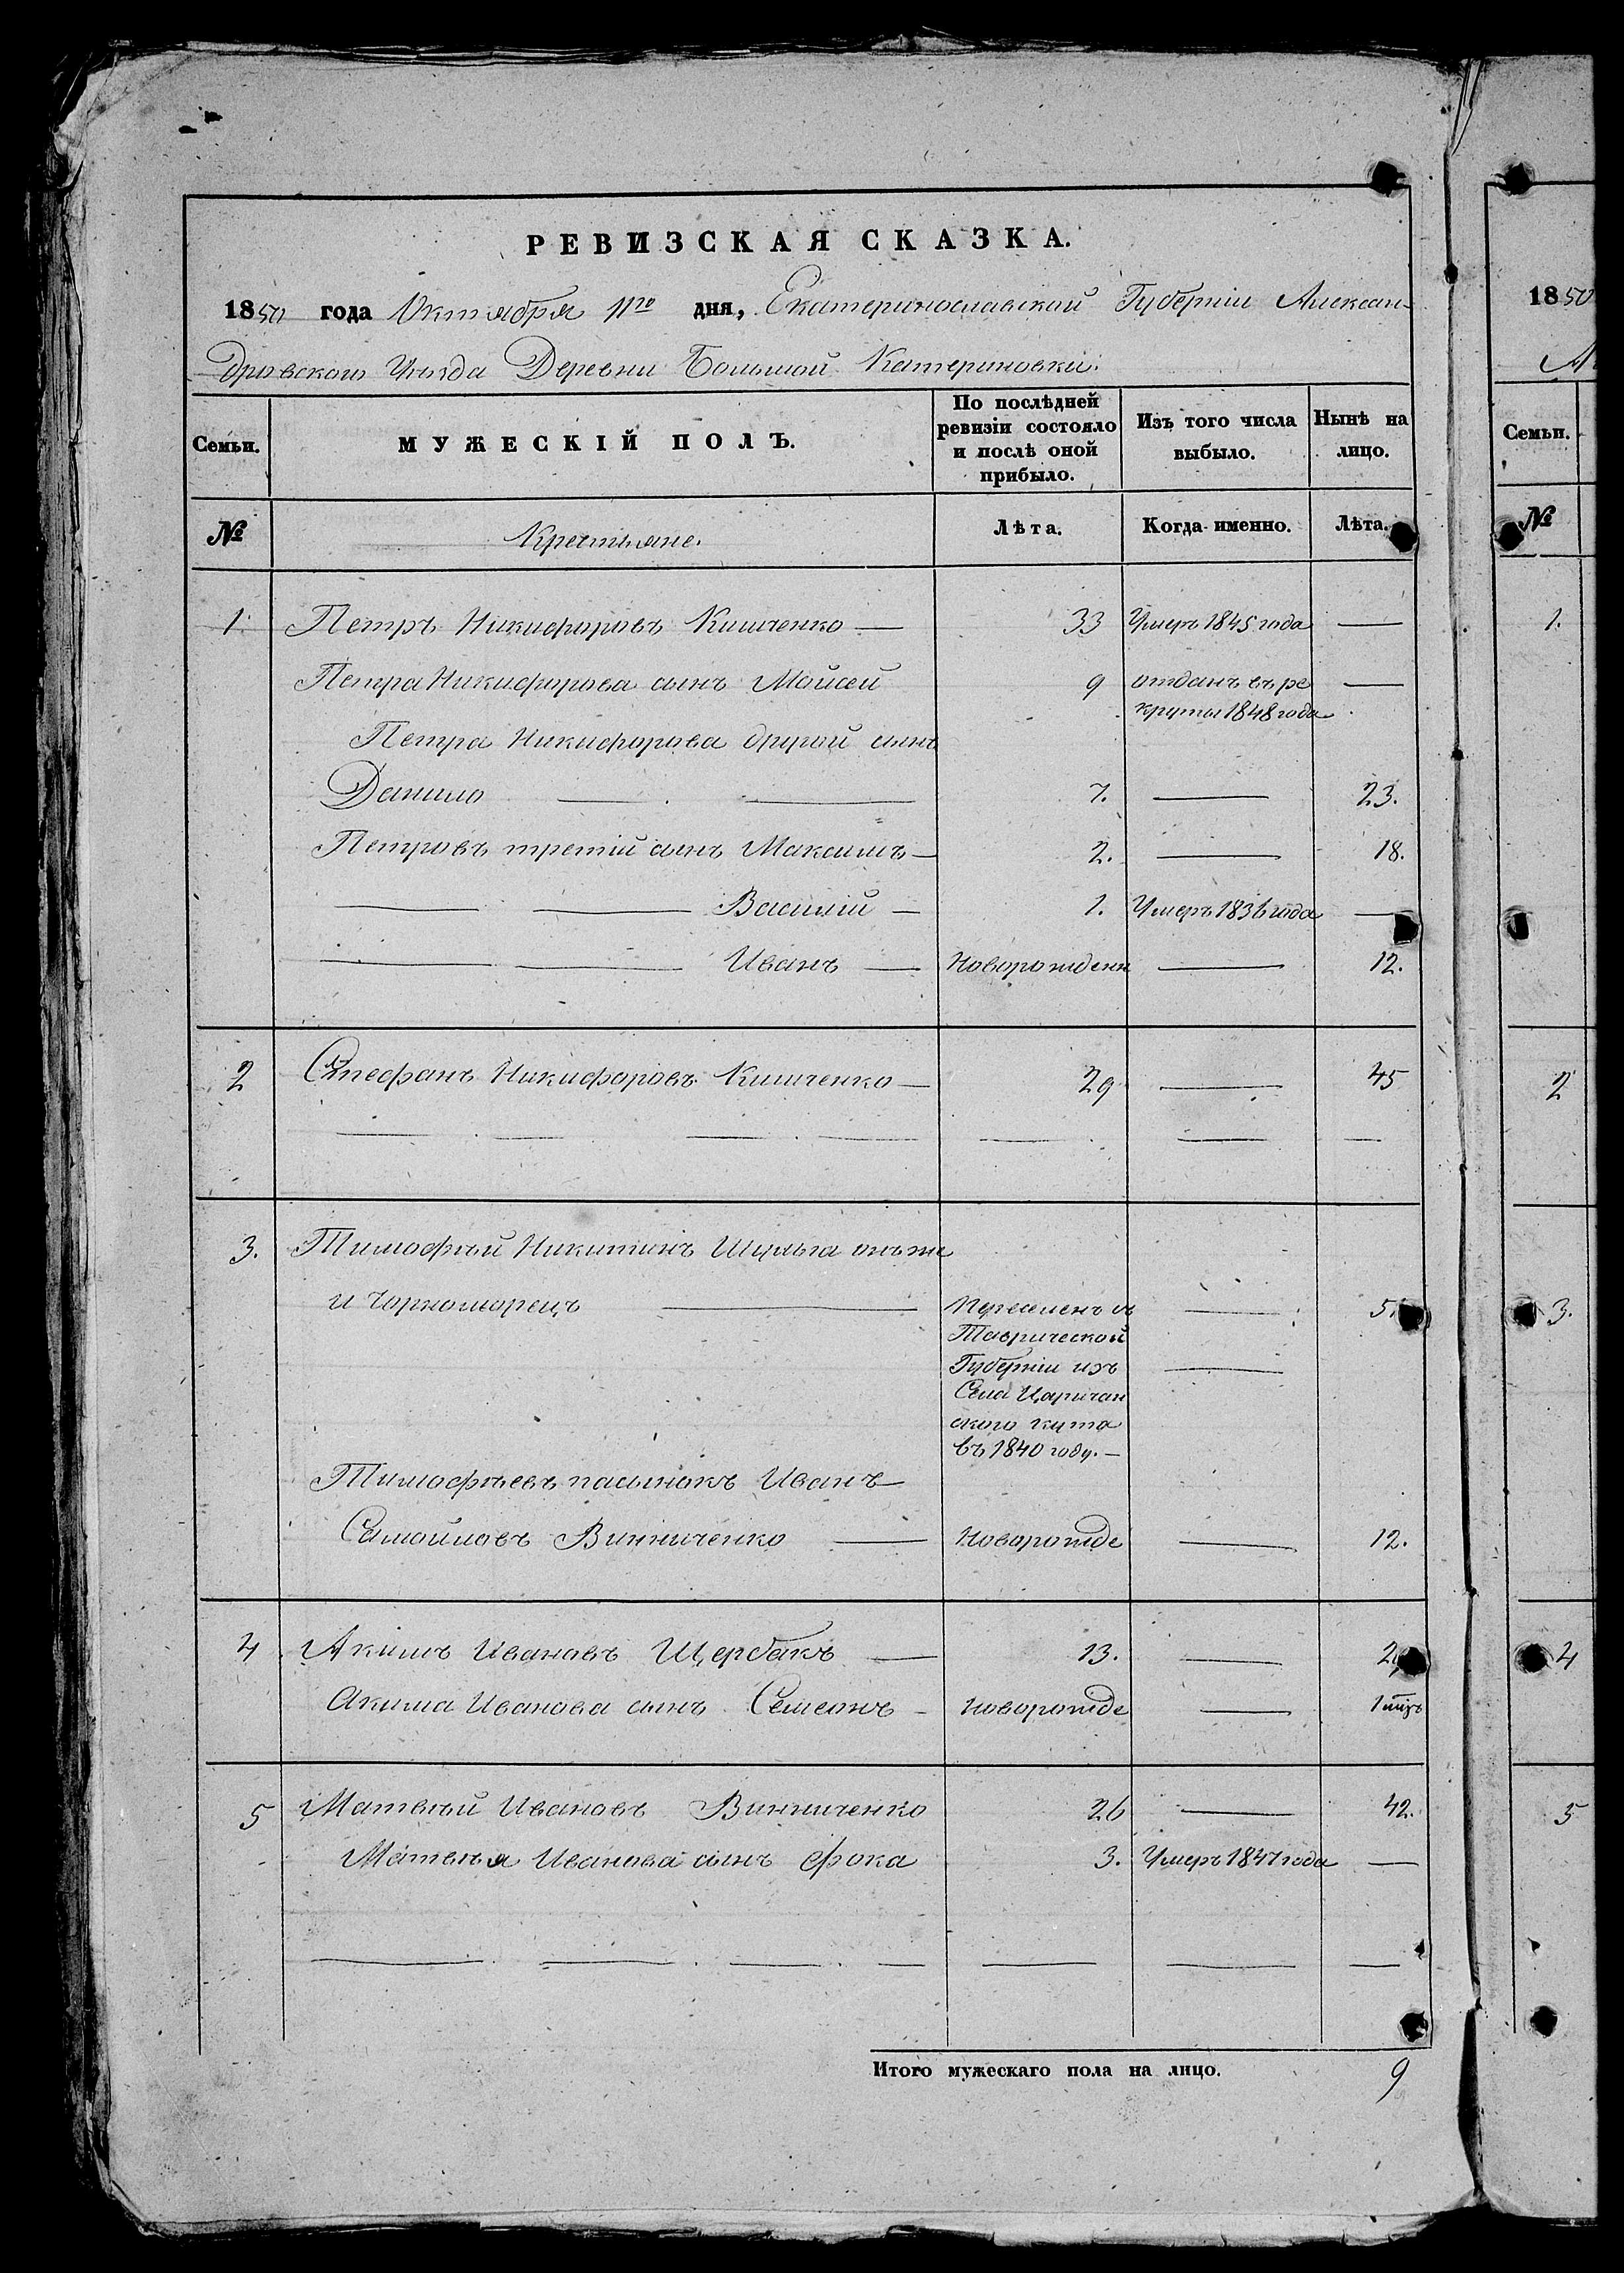 РЕВИЗСКАЯ СКАЗКА.
1850 года Октября 11го дня, Екатеринославской Губерніи Алексан-
дровского Уѣзда Деревни Большой Катериновки.
Семьи.
МУЖЕСКІЙ ПОЛЪ.
По послѣдней ревизіи состояло и послѣ оной прибыло.
Изъ того числа выбыло.
Нынѣ на лицо.
№
Крестьяне.
Лѣта.
Когда именно.
Лѣта.
1 Петръ Никифоровъ Кишченко — 33 Умеръ 1845 года —
Петра Никифорова сынъ Мойсей 9 отданъ въ ре —
круты 1848 года
Петра Никифорова другой сынъ
Данило — — 7. — 23.
Петровъ третій сынъ Максимъ — 2. — 18.
— — Василій — 1. Умеръ 1836 года —
— — Иванъ — Новорожденн — 12.
2 Стефанъ Никифоровъ Кишченко — 29 — 45
— — — — — — —
3. Тимофѣй Никитинъ Шульга онъ же
и Чорноморецъ — Переселенъ съ — 5
Таврической
Губерніи изъ —
Села Царичан
ского кута
въ 1840 году. —
Тимофѣевъ пасынокъ Иванъ —
Самойловъ Винниченко — Новорожде — 12.
4 Акимъ Ивановъ Щербакъ — 13. — 2
Акима Иванова сынъ Семенъ — Новорожде —
5 Матвѣй Ивановъ Винниченко 26 — 42.
Матвѣя Иванова сынъ Фока 3. Умеръ 1847 года —
— — — — — — —
Итого мужескаго пола на лицо. 9
1850
Семьи.
№
1.
2
3.
4
5